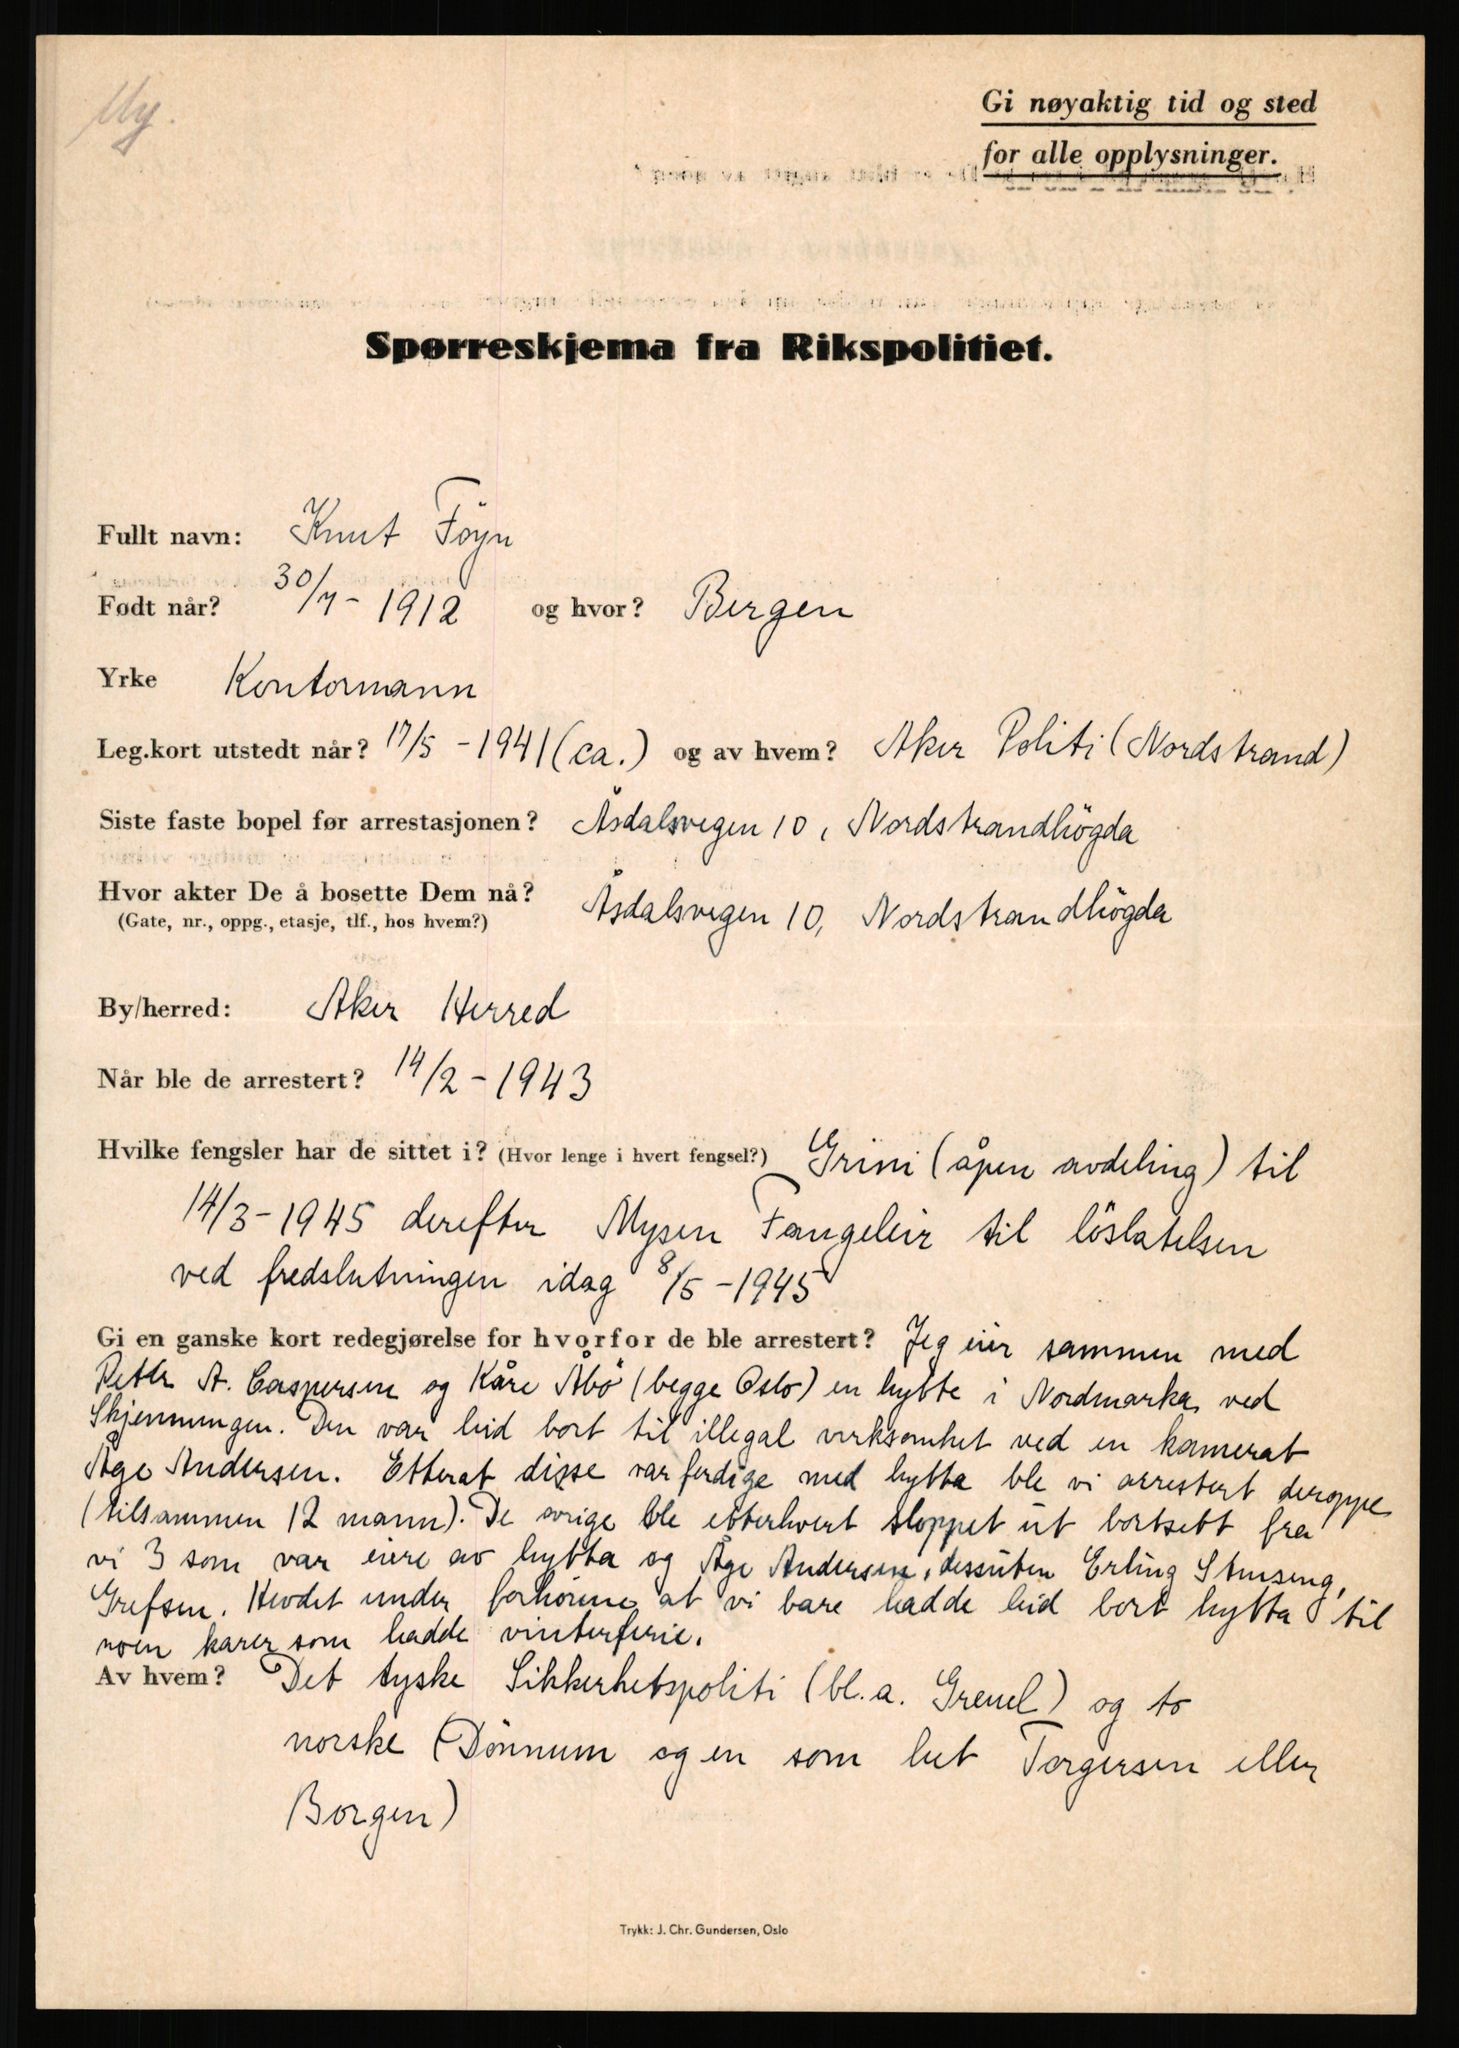 My.
Gi nøyaktig tid og sted
for alle opplysninger.
Spørreskjema fra Rikspolitiet.
Fullt navn: Knut Föyn
Født når? 30/7 - 1912 og hvor? Bergen
Yrke Kontormann
Leg.kort utstedt når? 17/5 - 1941 (ca.) og av hvem? Aker Politi (Nordstrand)
Siste faste bopel før arrestasjonen? Åsdalsvegen 10, Nordstrandhögda
Hvor akter De å bosette Dem nå? Åsdalsvegen 10, Nordstrandhögda
(Gate, nr., oppg., etasje, tlf., hos hvem?)
By/herred: Aker Herred
Når ble de arrestert? 14/2 - 1943
Hvilke fengsler har de sittet i? (Hvor lenge i hvert fengsel?) Grini (åpen avdeling) til
14/3 - 1945 derefter Mysen Fangeleir til löslatelsen
ved fredslutningen idag 8/5 - 1945
Gi en ganske kort redegjørelse for hvorfor de ble arrestert? Jeg eier sammen med
Petter A. Caspersen og Kåre Åbö (begge Oslo) en hytte i Nordmarka ved
Skjenningen. Den var leid bort til illegal virksomhet ved en kamerat
Åge Andersen. Etterat disse var ferdige med hytta ble vi arrestert deroppe
(tilsammen 12 mann). De övrige ble etterhvert sloppet ut bortsett fra
vi 3 som var eiere av hytta og Åge Andersen, dessuten Erling Stenseng,
Grefsen. Hevdet under forhörene at vi bare hadde leid bort hytta til
noen karer som hadde vinterferie.
Av hvem? Det tyske Sikkerhetspoliti (bl.a. Greuel) og to
norske (Dönnum og en som het Torgersen eller
Borgen)
Trykk: J. Chr. Gundersen, Oslo